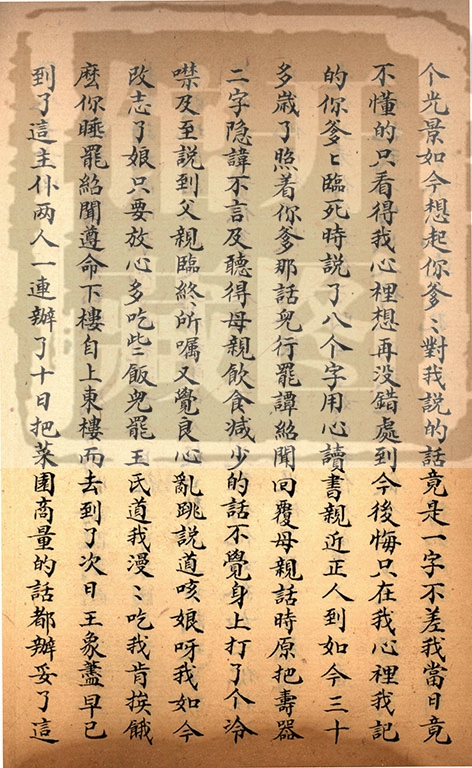 个光景如今想起你爹〻對我説的話竟是一字不差我當日竟
不懂的只看得我心裡想再没錯處到今後悔只在我心裡我記
的你爹〻臨死時説了八个字用心讀書親近正人到如今三十
多歲了照着你爹那話兒行罷譚紹聞回覆母親話時原把壽器
二字隐諱不言及聽得母親飲食减少的話不覺身上打了个冷
噤及至説到父親臨終所嘱又覺良心亂跳説道咳娘呀我如今
改志了娘只要放心多吃些飯兒罷王氏道我漫〻吃我肯挨餓
麽你睡罷紹聞遵命下樓自上東樓而去到了次日王象藎早已
到了這主仆两人一連辦了十日把菜園商量的話都辦妥了這